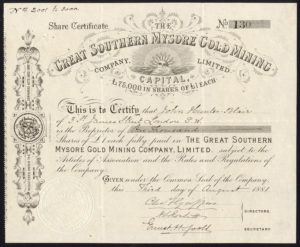 Nos 2001 to 2100.
Share Certificate
No 130
THE
GREAT SOUTHERN MYSORE GOLD MINING
COMPANY, LIMITED.
CAPITAL,
£175,000 IN SHARES OF £1 EACH
This is to Certify that John Hunter Blair
of St James Street London S.W.
is the Registered Proprietor of One Thousand
Shares of £1 each fully paid in THE GREAT SOUTHERN
MYSORE GOLD MINING COMPANY, LIMITED. subject to the
Articles of Association and the Rules and Regulations of
the Company.
GIVEN under the Common Seal of the Company,
this Third day of August 1881
DIRECTORS.
SECRETARY.